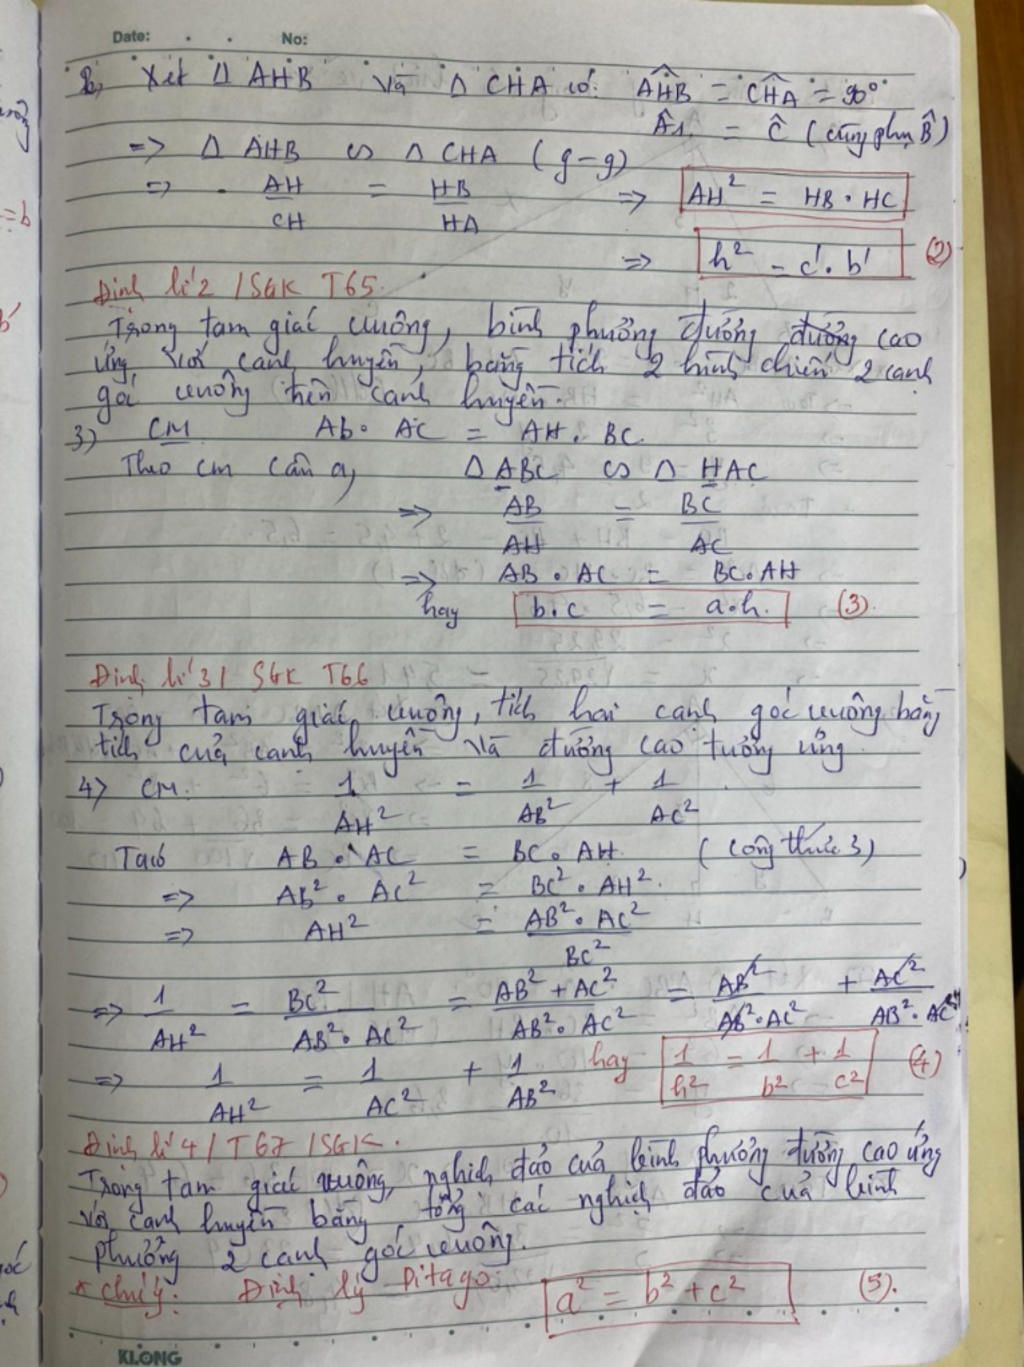 Date: No:
b, Xét Δ AHB và Δ CHA có: AHB̂ = CHÂ = 90°
Â1 = Ĉ (cùng phụ B̂)
=> Δ AHB ∽ Δ CHA (g-g)
=> AH/CH = HB/HA => AH² = HB . HC
=> h² = c'. b' (2)
Định lí 2 / SGK T65.
Trong tam giác vuông, bình phương đường cao
ứng với cạnh huyền, bằng tích 2 hình chiếu 2 cạnh
góc vuông trên cạnh huyền.
3) CM Ab. AC = AH. BC.
Theo cm câu a, Δ ABC ∽ Δ HAC
=> AB/AH = BC/AC
=> AB . AC = BC.AH
hay b.c = a.h. (3).
Định lí 3/ SGK T66
Trong tam giác vuông, tích hai cạnh góc vuông bằng
tích của cạnh huyền và đường cao tương ứng
4) CM. 1/AH² = 1/AB² + 1/AC²
Ta có AB . AC = BC. AH. (công thức 3)
=> Ab² . AC² = BC² . AH².
=> AH² = AB² . AC²/BC²
=> 1/AH² = BC²/AB² . AC² = AB² + AC²/AB² . AC² = AB²/AB² . AC² + AC²/AB² . AC²
=> 1/AH² = 1/AC² + 1/AB² hay 1/h² = 1/b² + 1/c² (4)
Định lí 4 / T67 / SGK.
Trong tam giác vuông, nghịch đảo của bình phương đường cao ứng
với cạnh huyền bằng tổng các nghịch đảo của bình
phương 2 cạnh góc vuông.
* chú ý: Định lý Pitago a² = b² + c² (5).
KLONG